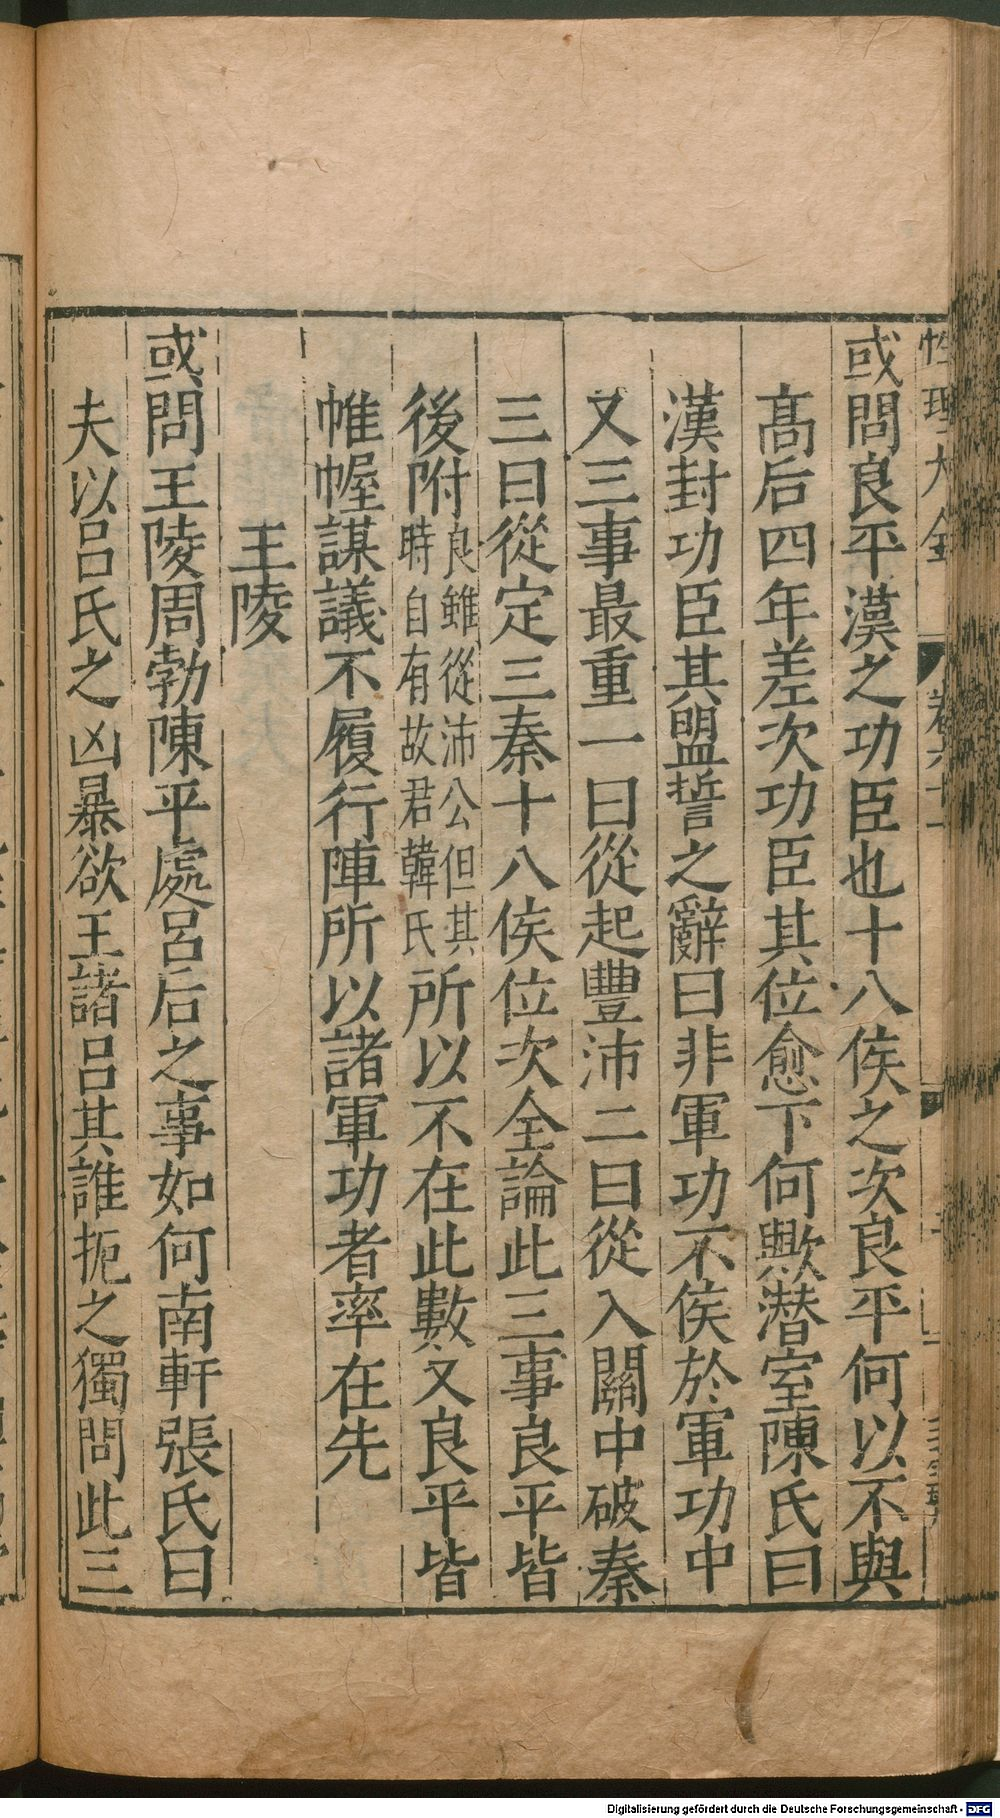 性理大全 卷六十一
或問良平漢之功臣也十八侯之次良平何以不與
髙后四年差次功臣其位愈下何歟潛室陳氏曰
漢封功臣其盟誓之辭曰非軍功不侯於軍功中
又三事最重一曰從起豐沛二曰從入關中破秦
三曰從定三秦十八侯位次全論此三事良平皆
後附良雖從沛公但其時自有故君韓氏所以不在此數又良平皆
帷幄謀議不履行陣所以諸軍功者率在先
王陵
或問王陵周勃陳平處呂后之事如何南軒張氏曰
夫以呂氏之凶暴欲王諸呂其誰扼之獨問此三
Digitalisierung gefördert durch die Deutsche Forschungsgemeinschaft - DFG